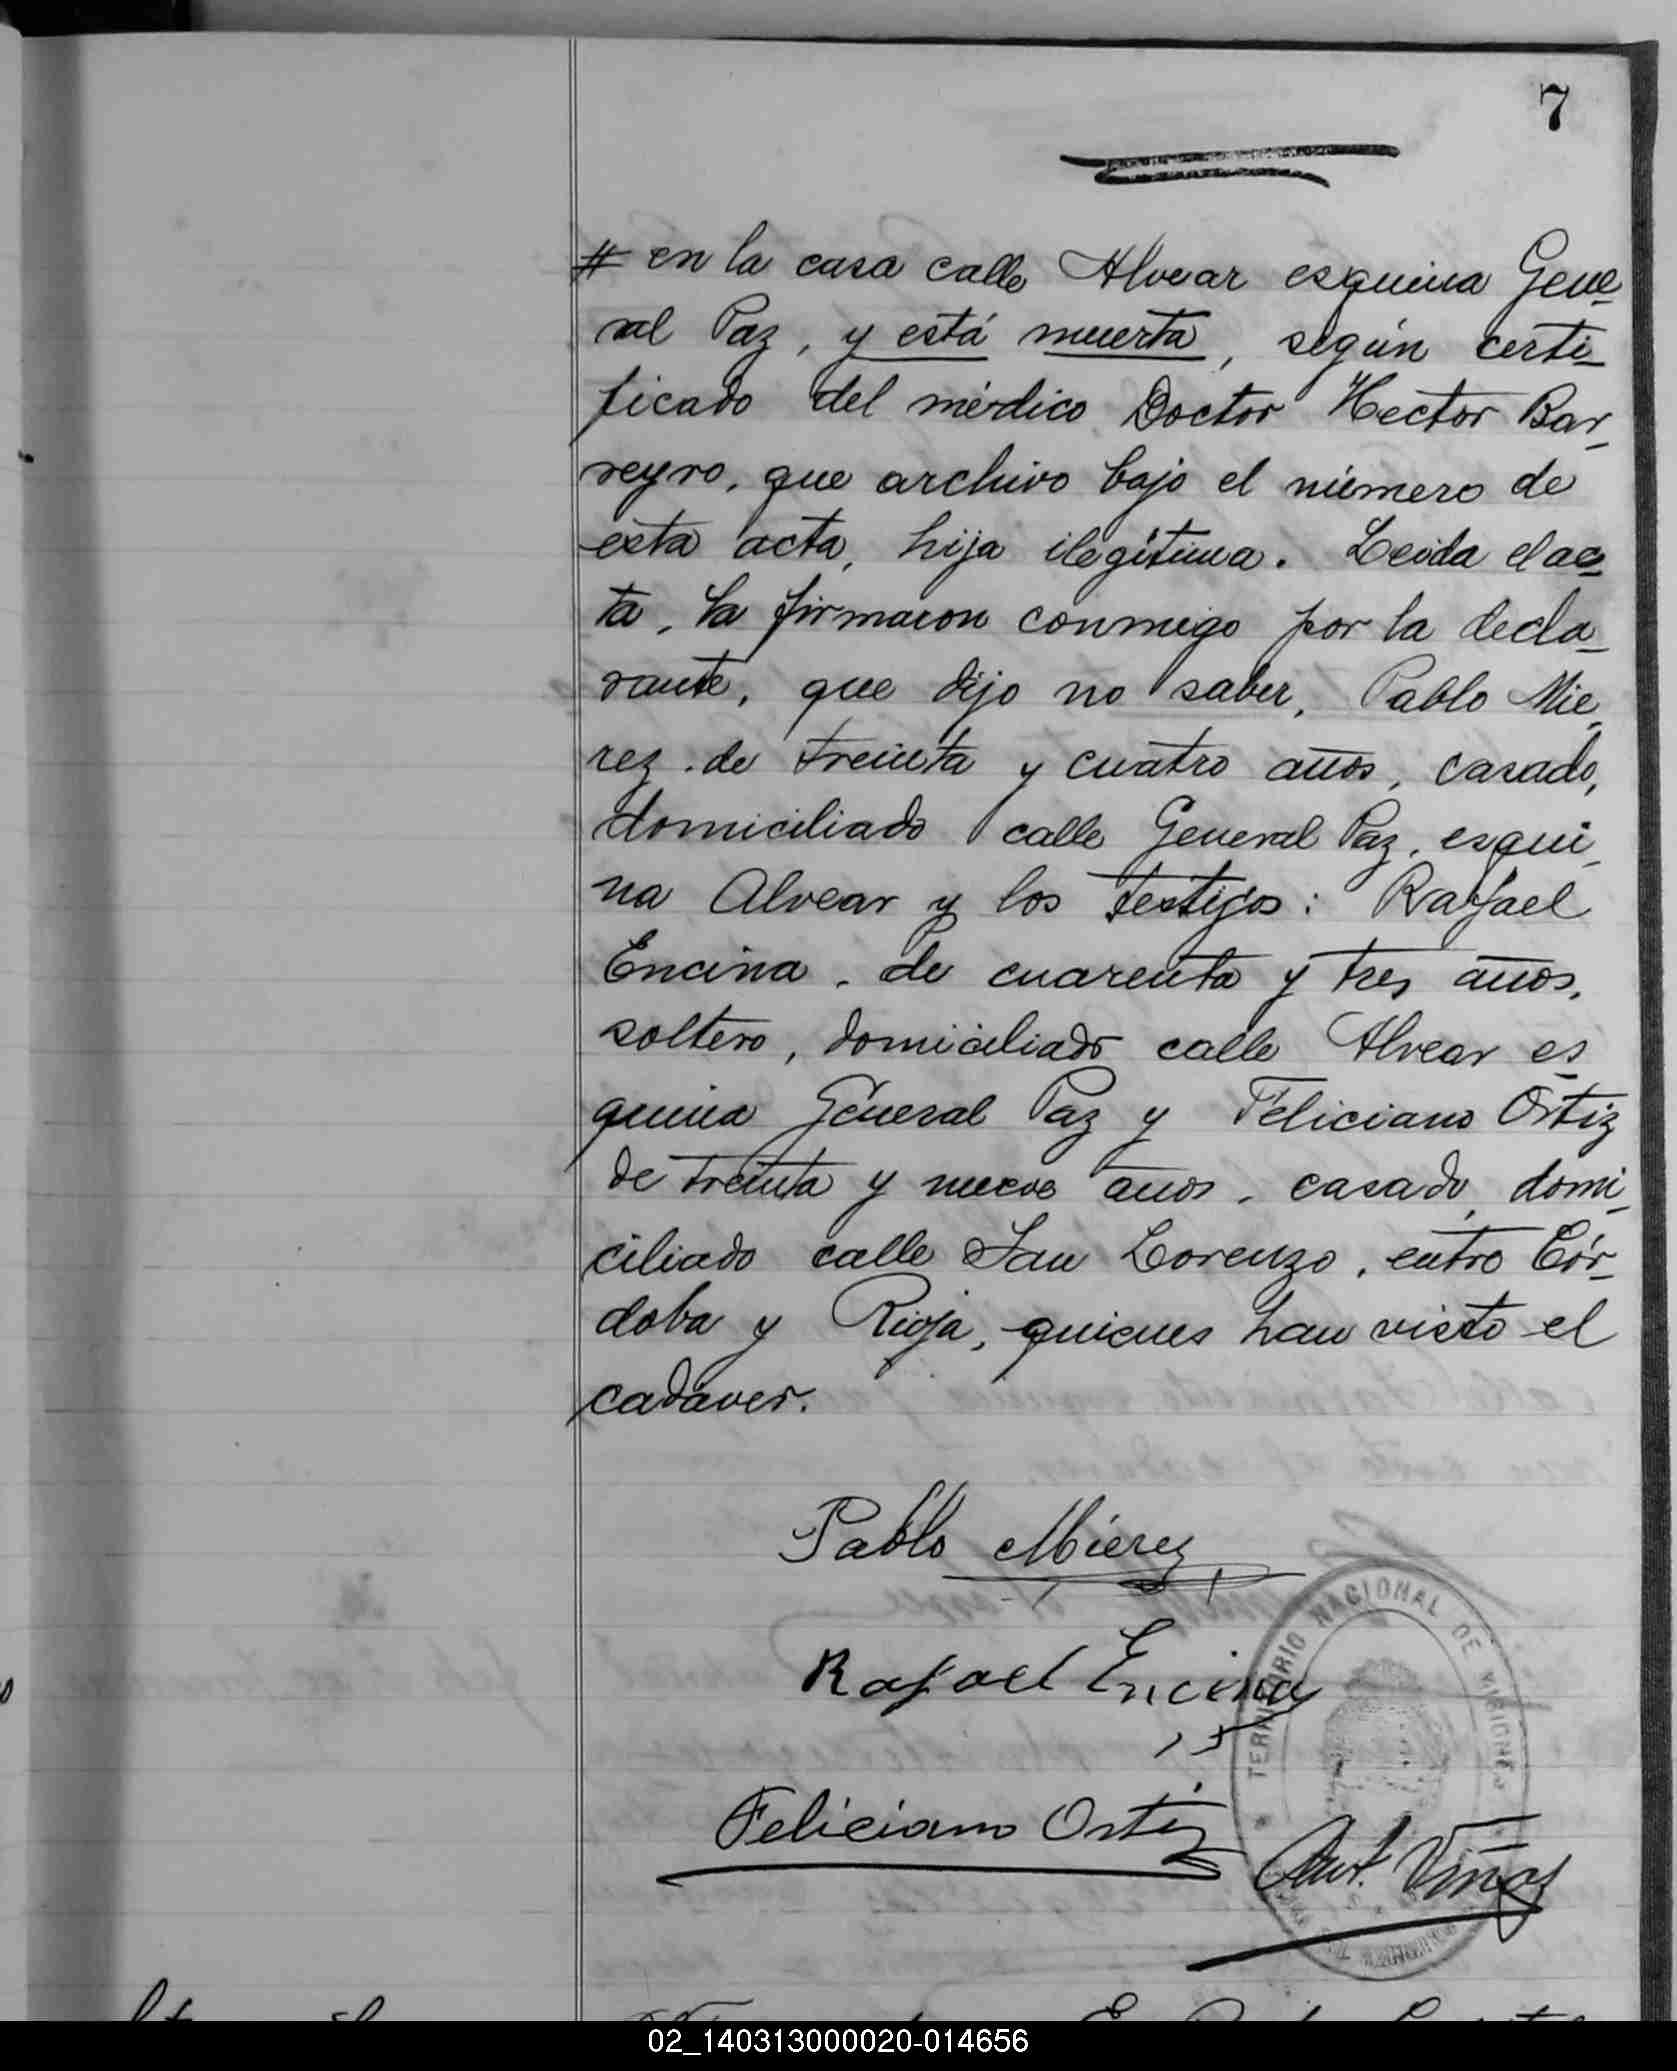 7
# en la casa calle Alvear esquina Gene-
ral Paz, y está muerta, según certi-
ficado del médico Doctor Hector Bar-
reyro, que archivo bajo el número de
esta acta, hija ilegítima. Leida el ac-
ta, la firmaron conmigo por la decla-
rante, que dijo no saber, Pablo Mie-
rez, de treinta y cuatro años, casado,
domiciliado calle General Paz, esqui-
na Alvear y los testigos: Rafael
Encina, de cuarenta y tres años,
soltero, domiciliado calle Alvear es-
quina General Paz y Feliciano Ortiz
de treinta y nueve años, casado, domi-
ciliado calle San Lorenzo, entre Cór-
doba y Rioja, quienes han visto el
cadáver.
Pablo Mierez
Rafael Encina
Feliciano Ortiz
Ant. Viñas
TERRITORIO NACIONAL DE MISIONES
02_140313000020-014656